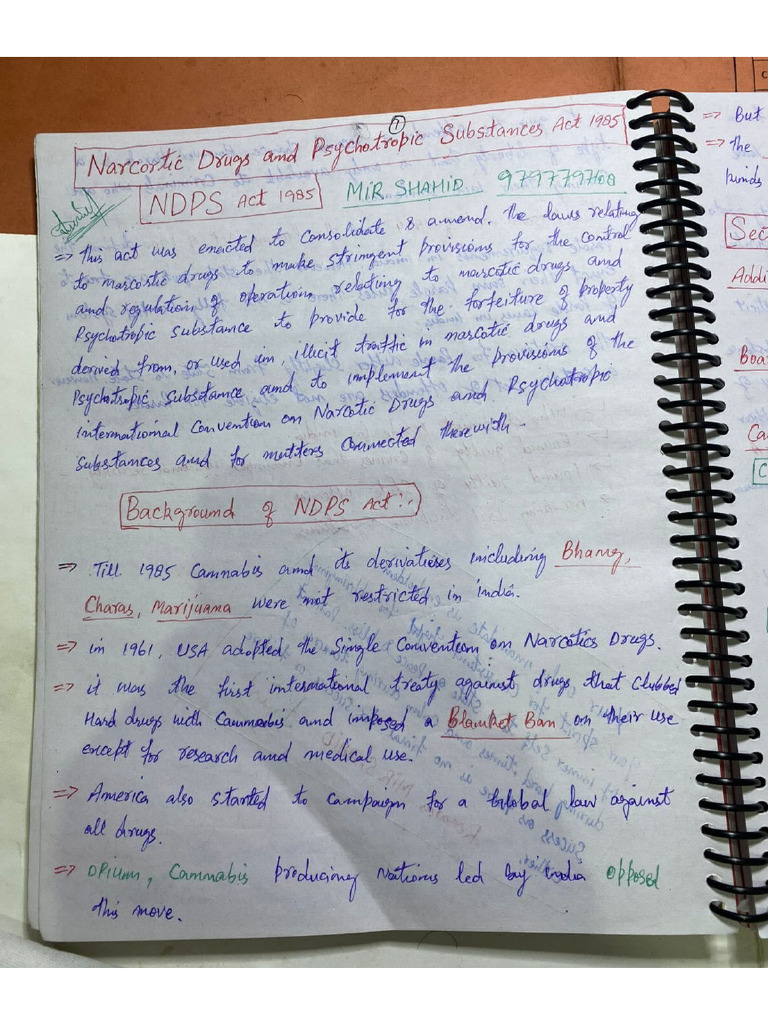 1
Narcortic Drugs and Psychotropic Substances Act 1985
NDPS Act 1985
MIR SHAHID
=> This act was enacted to consolidate & amend. The laws relating
to narcotic drugs to make stringent provisions for the control
and regulation of operation relating to narcotic drugs and
Psychotropic substance to provide for the forfeiture of property
derived from, or used in illicit traffic in narcotic drugs and
Psychotropic Substance and to implement the provisions of the
international Convention on Narcotic Drugs and Psychotropic
Substances and for matters Connected therewith.
Background of NDPS Act :-
=> Till 1985 Cannabis and its derivatives including Bhang,
Charas, Marijuana were not restricted in india.
=> in 1961, USA adopted the Single Convention on Narcotics Drugs.
=> it was the first international treaty against drugs that Clubbed
Hard drugs with Cannabis and imposed a Blanket Ban on their use
except for research and medical use.
=> America also started to campaign for a Global law against
all drugs.
=> Opium, Cannabis producing Nations led by india opposed
this move.
=> But
=> The
kinds
Sec
Addi
Boa
Ca
C